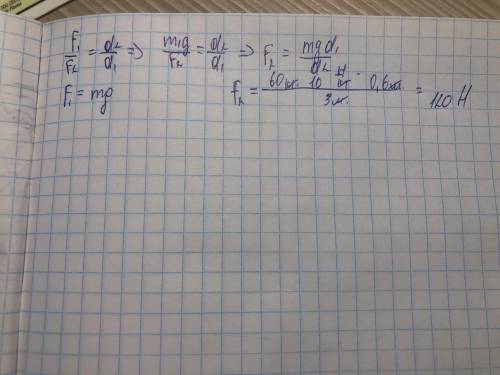 F₁/F₂ = d₂/d₁ => m₁g/F₂ = d₂/d₁ => F₂ = mgd₁/d₂
F₁ = mg F₂ = 60кг · 10 Н/кг · 0,6м / 3м = 120 Н